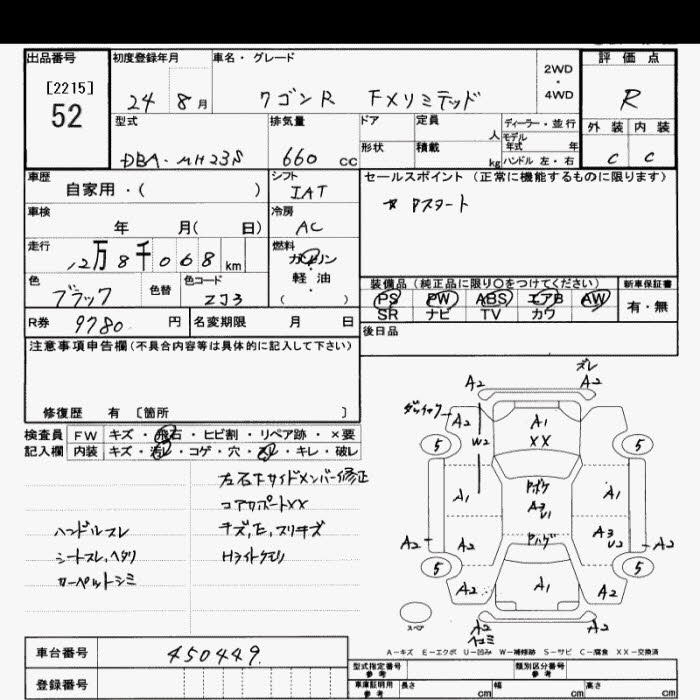 出品番号 初度登録年月 車名・グレード 2WD・4WD 評価点
[2215]
52
24 8月 ワゴンR FXリミテッド R
型式 排気量 ドア 定員 人 ディーラー・並行 外装 内装
DBA-MH23S 660 cc 形状 積載 kg モデル年式 年 ハンドル 左・右 C C
車歴 自家用・( ) シフト IAT セールスポイント(正常に機能するものに限ります)
Pスタート
車検 年 月( 日) 冷房 AC
走行 12万8千068km 燃料 ガソリン・軽油・( )
色 ブラック 色替 色コード ZJ3
装備品(純正品に限り○をつけてください) 新車保証書
PS PW ABS エアB AW 有・無
SR ナビ TV カワ
R券 9780円 名変期限 月 日 後日品
注意事項申告欄(不具合内容等は具体的に記入して下さい)
修復歴 有 〔箇所 〕
検査員 FW キズ・飛石・ヒビ割・リペア跡・×要
記入欄 内装 キズ・汚レ・コゲ・穴・スレ・キレ・破レ
左右下サイドメンバー修正
コアサポートXX
ハンドルスレ キズ,E,スリキズ
シートスレ,ヘタリ Hライトクモリ
カーペットシミ
ズレ
A2 A2
A2 A1 A2
W2 XX
5 5
Pボケ
A1 A3 A1
U1
A3
A2 A2 Pハゲ U2 A2
5 5
A2 A1 A2
スペア
A2 A2
A-キズ E-エクボ U-凹み W-補修跡 S-サビ C-腐食 XX-交換済
車台番号 450449
登録番号
型式指定番号 参考 類別区分番号 参考
車庫証明用 参考 長さ cm 幅 cm 高さ cm